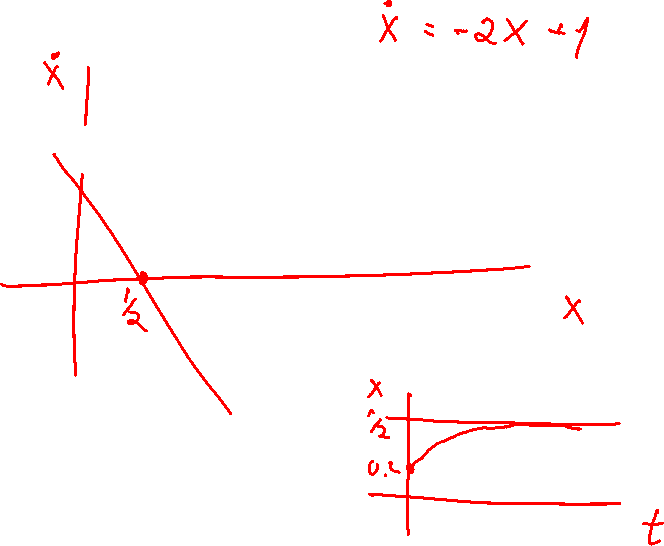 ẋ = -2x + 1
ẋ
1/2
x
x
1/2
0.2
t